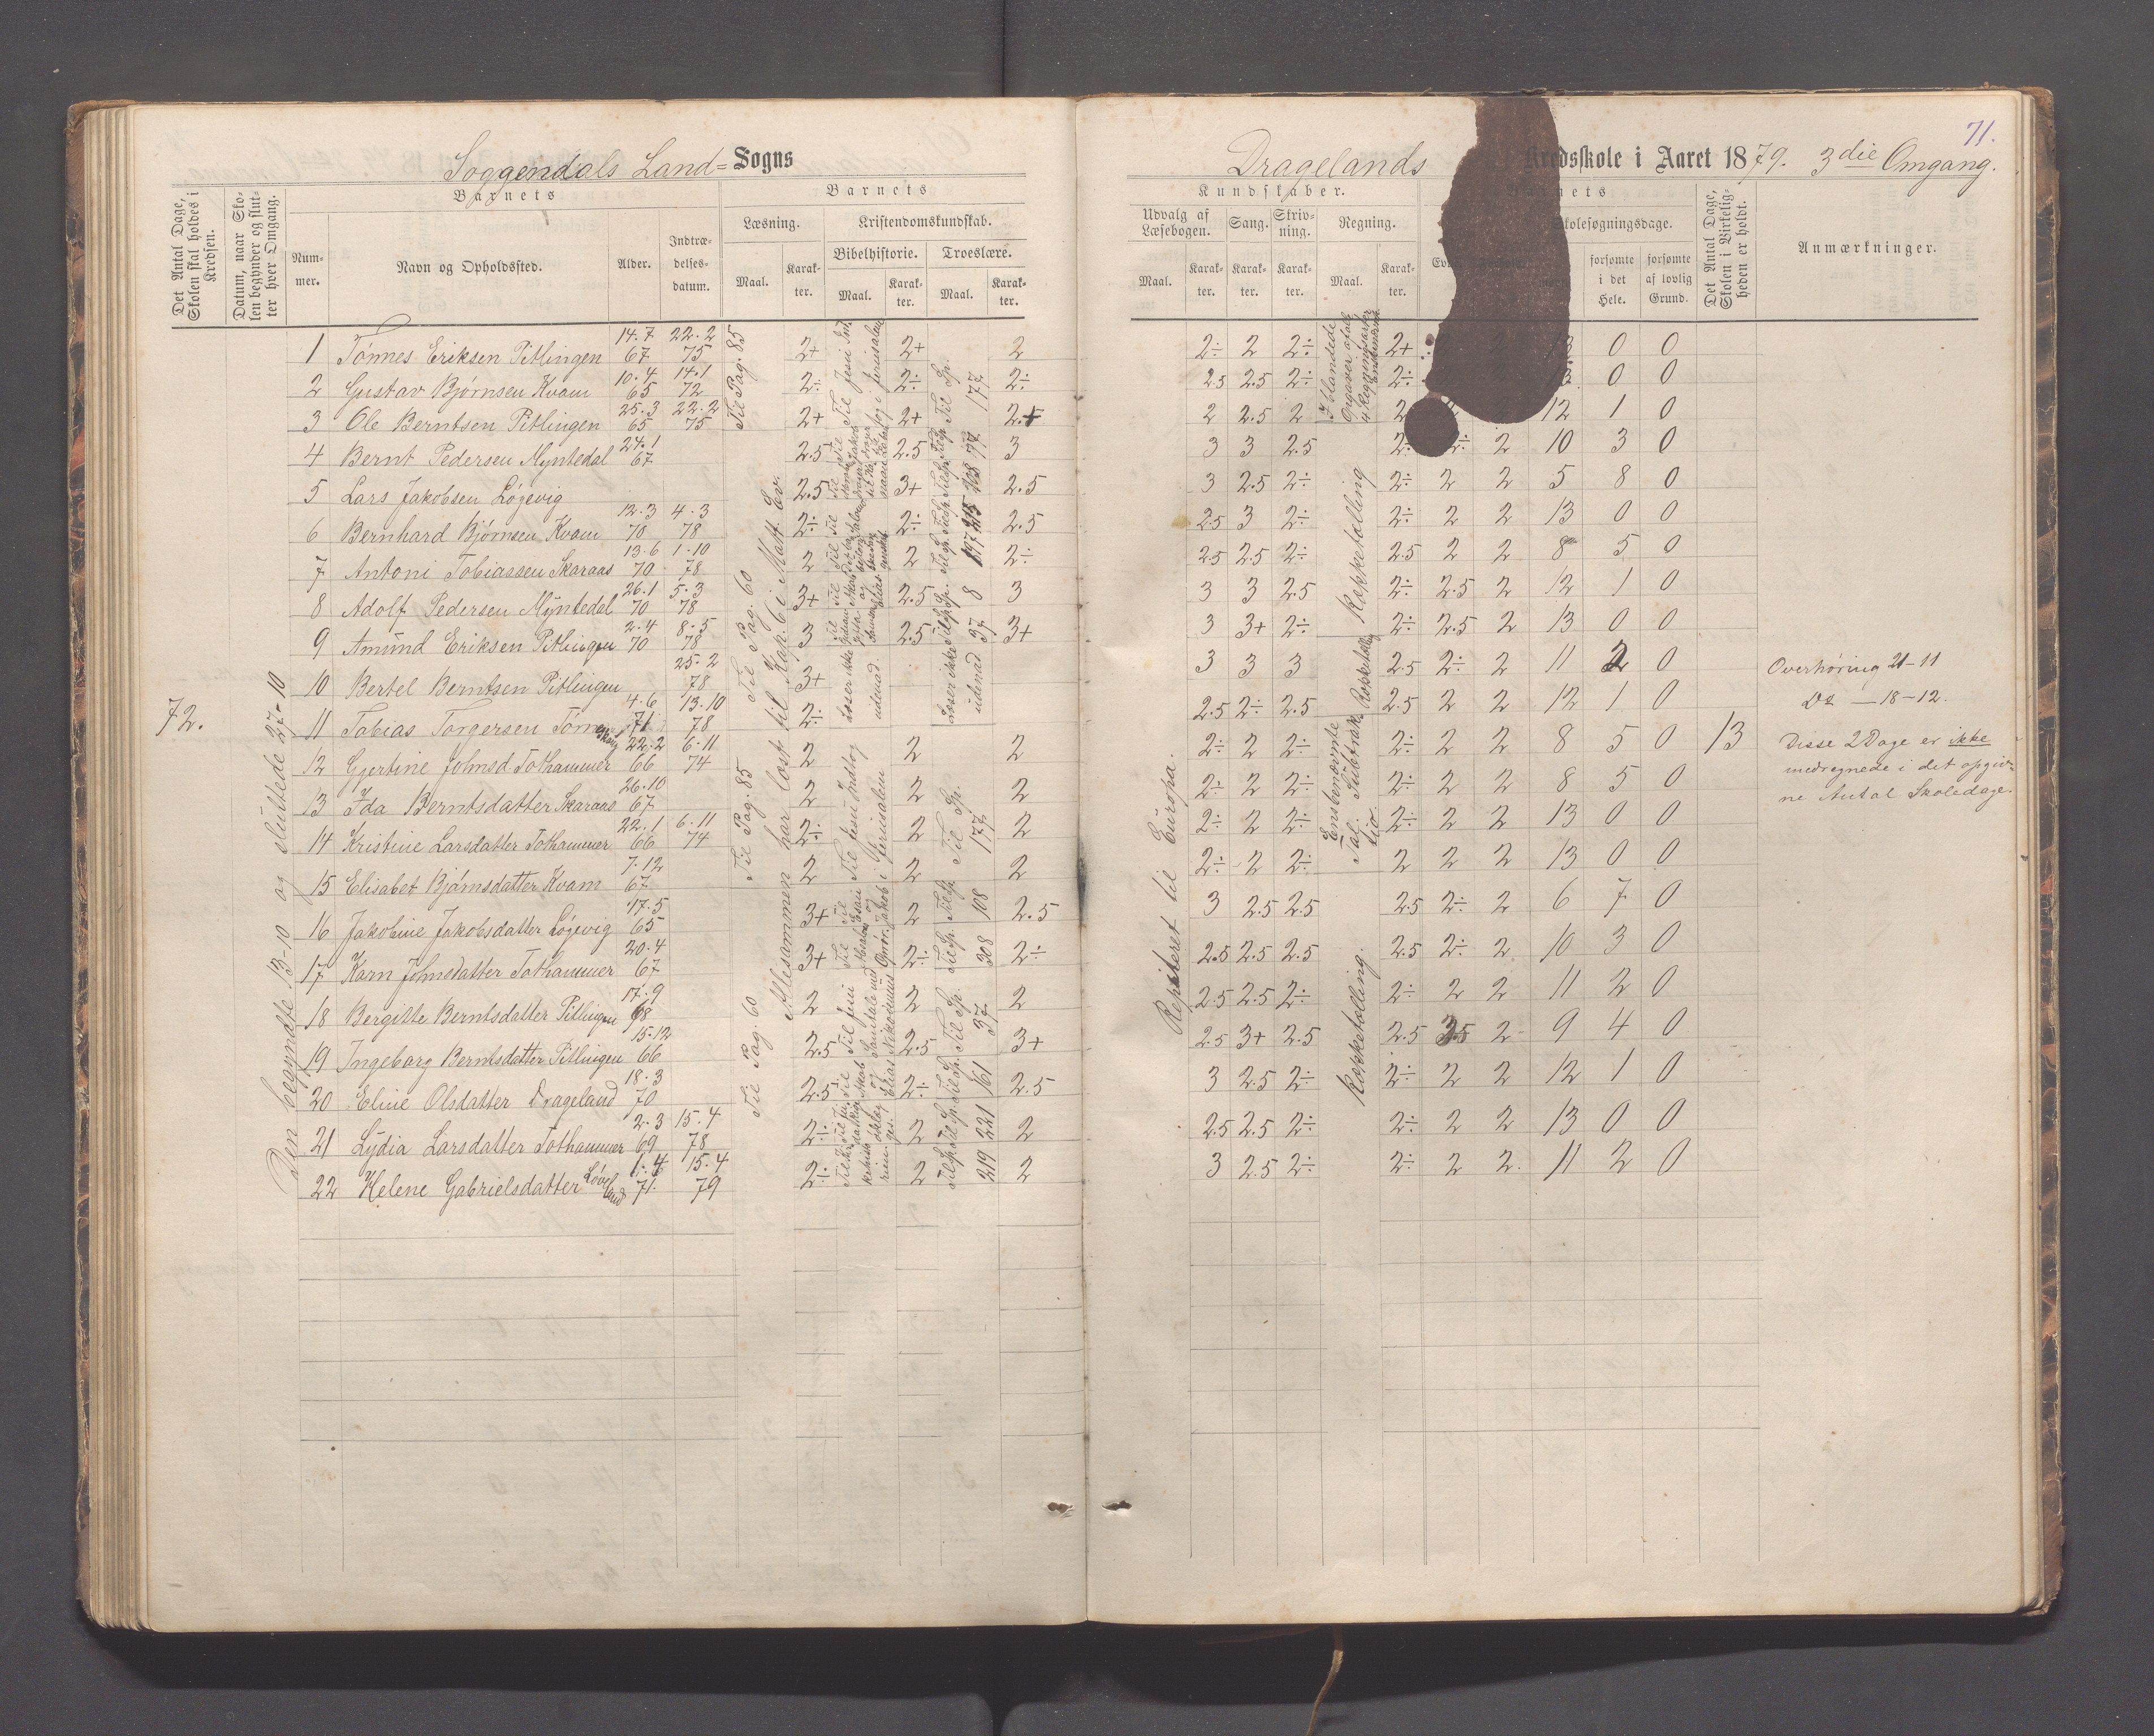 71.
Soggendals Land= Sogns
Dragelands Kredsskole i Aaret 1879. 3die Omgang.
Det Antal Dage, Skolen skal holdes i Kredsen.
Datum, naar Skolen begynder og slutter hver Omgang.
Barnets
Nummer.
Navn og Opholdssted.
Alder.
Indtrædelsesdatum.
Barnets
Læsning.
Maal.
Karakter.
Kristendomskundskab.
Bibelhistorie.
Maal.
Karakter.
Troeslære.
Maal.
Karakter.
Kundskaber.
Udvalg af Læsebogen.
Maal.
Karakter.
Sang.
Karakter.
Skrivning.
Karakter.
Regning.
Maal.
Karakter.
Skolesøgningsdage.
forsømte i det Hele.
forsømte af lovlig Grund.
Det Antal Dage, Skolen i Virkeligheden er holdt.
Anmærkninger.
72.
Den begyndte 13-10 og sluttede 27-10
Til Pag. 85
Til Pag. 60
Til Pag. 85
Til Pag. 60
Allesammen har læst til Kap. 6 i Matt. Ev.
Læser ikke udenad.
Læser ikke udenad
Repiteret til Europa.
Koppetælling
Koppetælling
Koppetælling.
1 Tönnes Eriksen Pitlingen 14.7 67 22.2 75 2+ 2+ 2 2÷ 2 2÷ 2+ 0 0
2 Gustav Bjørnsen Kvam 10.4 65 14.1 72 2÷ 2÷ 2÷ 2.5 2.5 2÷ 2÷ 0 0
3 Ole Berntsen Pitlingen 25.3 65 22.2 75 2+ 2+ 2.5 2 2.5 2 2 12 1 0
4 Bernt Pedersen Myntedal 24.1 67 2.5 2.5 3 3 3 2.5 2÷ 2 10 3 0
5 Lars Jakobsen Løgevig 2.5 3+ 2.5 3 2.5 2÷ 2÷ 2 2 5 8 0
6 Bernhard Bjørnsen Kvam 12.3 70 4.3 78 2÷ 2÷ 2.5 2.5 3 2÷ 2÷ 2 2 13 0 0
7 Antoni Tobiassen Skaraas 13.6 70 1.10 78 2 2 2÷ 2.5 2.5 2÷ 2.5 2 2 8 5 0
8 Adolf Pedersen Myntedal 26.1 70 5.3 78 3+ 2.5 3 3 3 2.5 2÷ 2.5 2 12 1 0
9 Amünd Eriksen Pitlingen 2.4 70 8.5 78 3 2.5 3+ 3 3+ 2÷ 2÷ 2.5 2 13 0 0
10 Bertel Berntsen Pitlingen 25.2 78 3+ 3 3 3 2.5 2÷ 2 11 2 0
11 Tobias Torgersen 4.6 71 13.10 78 2÷ 2.5 2÷ 2.5 2.5 2 2 12 1 0
12 Gjertine Johnsd. Tothammer 22.2 66 6.11 74 2 2 2 2÷ 2 2÷ 2÷ 2 2 8 5 0 13
13 Ida Berntsdatter Skaraas 26.10 67 2 2 2 2÷ 2 2÷ 2÷ 2 2 8 5 0
14 Kristine Larsdatter Tothammer 22.1 66 6.11 74 2÷ 2 2 2÷ 2 2÷ 2÷ 2 2 13 0 0
15 Elisabet Bjørnsdatter Kvam 7.12 67 2 2 2 2÷ 2 2÷ 2 2 2 13 0 0
16 Jakobine Jakobsdatter Løgevig 17.5 65 3+ 2 108 2.5 3 2.5 2.5 2.5 2÷ 2 6 7 0
17 Karn Johnsdatter Tothammer 20.4 67 3+ 2÷ 308 2÷ 2.5 2.5 2.5 2.5 2÷ 2 10 3 0
18 Bergitte Berntsdatter Pitlingen 17.9 68 2 2 37 2 2.5 2.5 2÷ 2÷ 2 2 11 2 0
19 Ingeborg Berntsdatter Pitlingen 15.12 66 2.5 2.5 3+ 2.5 3+ 2.5 2.5 2 9 4 0
20 Eline Olsdatter Drageland 18.3 70 2.5 2÷ 161 2.5 3 2.5 2÷ 2÷ 2 2 12 1 0
21 Lydia Larsdatter Tothammer 2.3 69 15.4 78 2÷ 2 221 2 2.5 2.5 2÷ 2÷ 2 2 13 0 0
22 Helene Gabrielsdatter 71 15.4 79 2÷ 2 219 2 3 2.5 2÷ 2÷ 2 2. 11 2 0
Overhøring 21-11
Do — 18-12.
Disse 2 Dage er ikke
medregnede i det opgiv-
ne Antal Skoledage.